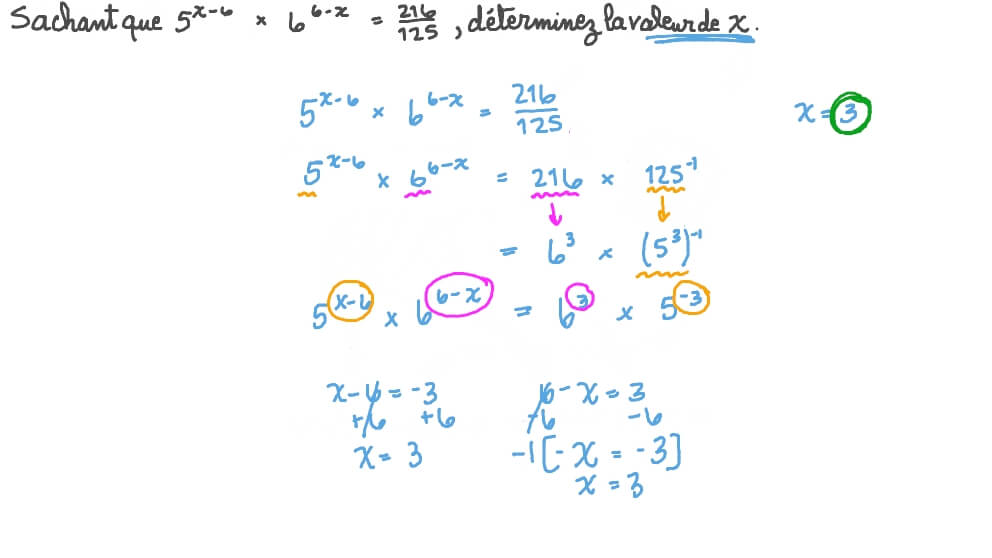 Sachant que 5^(x-6) × 6^(6-x) = 216/125, déterminez la valeur de x.
5^(x-6) × 6^(6-x) = 216/125
x = 3
5^(x-6) × 6^(6-x) = 216 × 125^(-1)
= 6^3 × (5^3)^(-1)
5^(x-6) × 6^(6-x) = 6^3 × 5^(-3)
x-6 = -3
+6 +6
x = 3
6-x = 3
-6 -6
-1[-x = -3]
x = 3